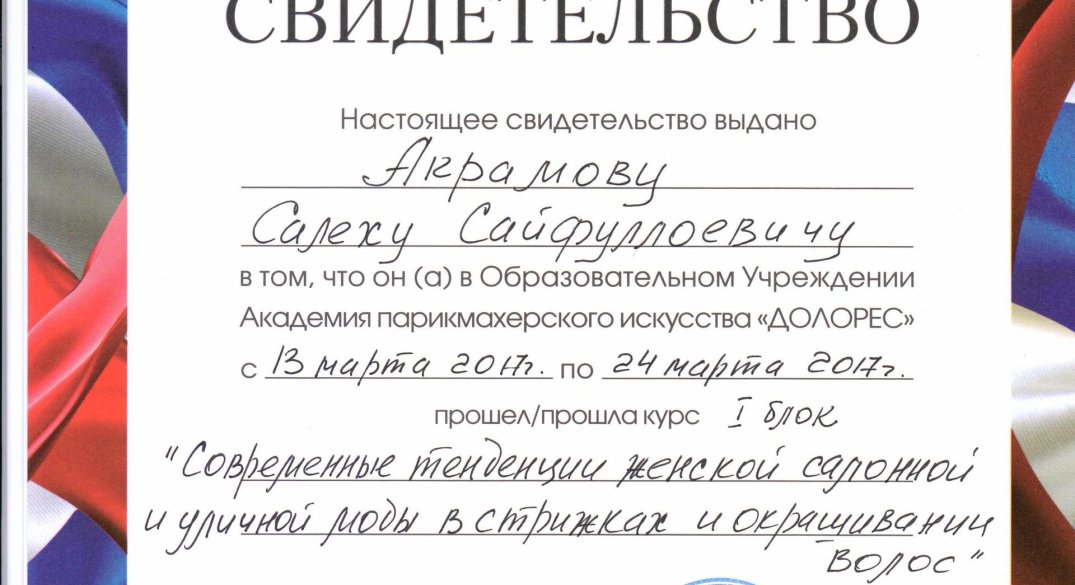 СВИДЕТЕЛЬСТВО
Настоящее свидетельство выдано
Акрамову
Салеху Сайфуллоевичу
в том, что он (а) в Образовательном Учреждении
Академия парикмахерского искусства «ДОЛОРЕС»
с 13 марта 2017г. по 24 марта 2017г.
прошел/прошла курс I блок
"Современные тенденции женской салонной
и уличной моды в стрижках и окрашивании
волос"